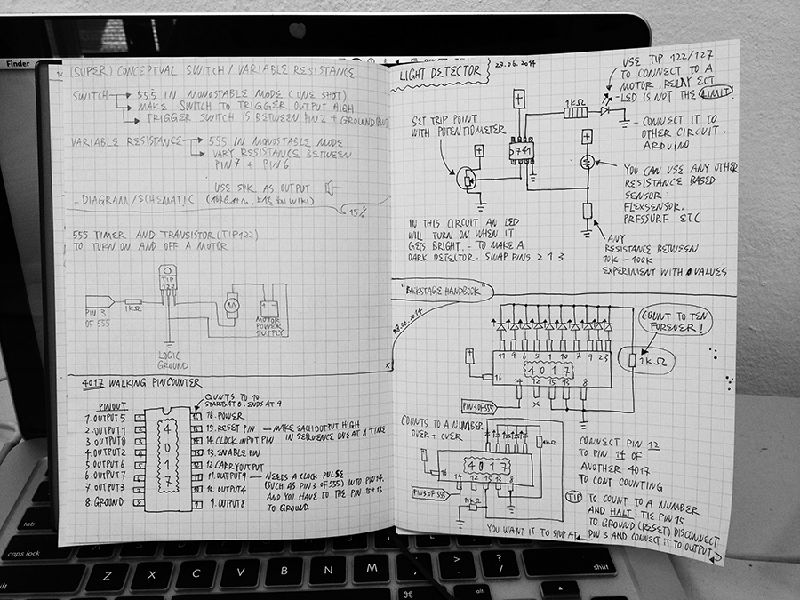 Finder
(SUPER) CONCEPTUAL SWITCH / VARIABLE RESISTANCE
SWITCH
555 IN MONOSTABLE MODE (ONE SHOT)
MAKE SWITCH TO TRIGGER OUTPUT HIGH
TRIGGER SWITCH IS BETWEEN PIN 2 + GROUND
VARIABLE RESISTANCE
555 IN MONOSTABLE MODE
VARY RESISTANCE BETWEEN
PIN 7 + PIN 6
USE SPK. AS OUTPUT
DIAGRAM/SCHEMATIC
555 TIMER AND TRANSISTOR (TIP122)
TO TURN ON AND OFF A MOTOR
TIP
122
PIN 3
OF 555
1KΩ
M
MOTOR
POWER
SUPPLY
LOGIC
GROUND
4017 WALKING PIN COUNTER
COUNTS UP TO
STARTS AT 0. ENDS AT 9
PINOUT
1 OUTPUT 5
2 OUTPUT 1
3 OUTPUT 0
4 OUTPUT 2
5 OUTPUT 6
6 OUTPUT 7
7 OUTPUT 3
8 GROUND
4
0
1
7
16. POWER
15. RESET PIN — MAKE EACH OUTPUT HIGH
14. CLOCK INPUT PIN IN SEQUENCE ONE AT A TIME
13. ENABLE ON
12. CARRY OUTPUT
11. OUTPUT 9 — NEEDS A CLOCK PULSE
10. OUTPUT 4 (SUCH AS PIN 3 OF 555) INTO PIN 14.
9. OUTPUT 8 AND YOU HAVE TO TIE PIN
TO GROUND
LIGHT DETECTOR
23.06.2014
USE TIP 122/127
TO CONNECT TO A
MOTOR RELAY ECT
- LED IS NOT THE LIMIT
- CONNECT IT TO
OTHER CIRCUIT.
ARDUINO
1KΩ
SET TRIP POINT
WITH POTENTIOMETER
741
YOU CAN USE ANY OTHER
RESISTANCE BASED
SENSOR
FLEXSENSOR.
PRESSURE ETC
IN THIS CIRCUIT AN LED
WILL TURN ON WHEN IT
GETS BRIGHT. - TO MAKE A
DARK DETECTOR. SWAP PINS 2 + 3
ANY
RESISTANCE BETWEEN
10K - 100K
EXPERIMENT WITH VALUES
"BACKSTAGE HANDBOOK"
COUNT TO TEN
FOREVER!
1KΩ
4017
16
4 12 15 13 8
PIN 3 OF 555
COUNTS TO A NUMBER
OVER + OVER
4017
PIN 3 OF 555
CONNECT PIN 12
TO PIN 14 OF
ANOTHER 4017
TO CONT COUNTING
TIP
TO COUNT TO A NUMBER
AND HALT TIE PIN 15
TO GROUND (RESET) DISCONNECT
PIN 13 AND CONNECT IT TO OUTPUT
YOU WANT IT TO STOP AT
caps lock
Z X C V B N M
shift